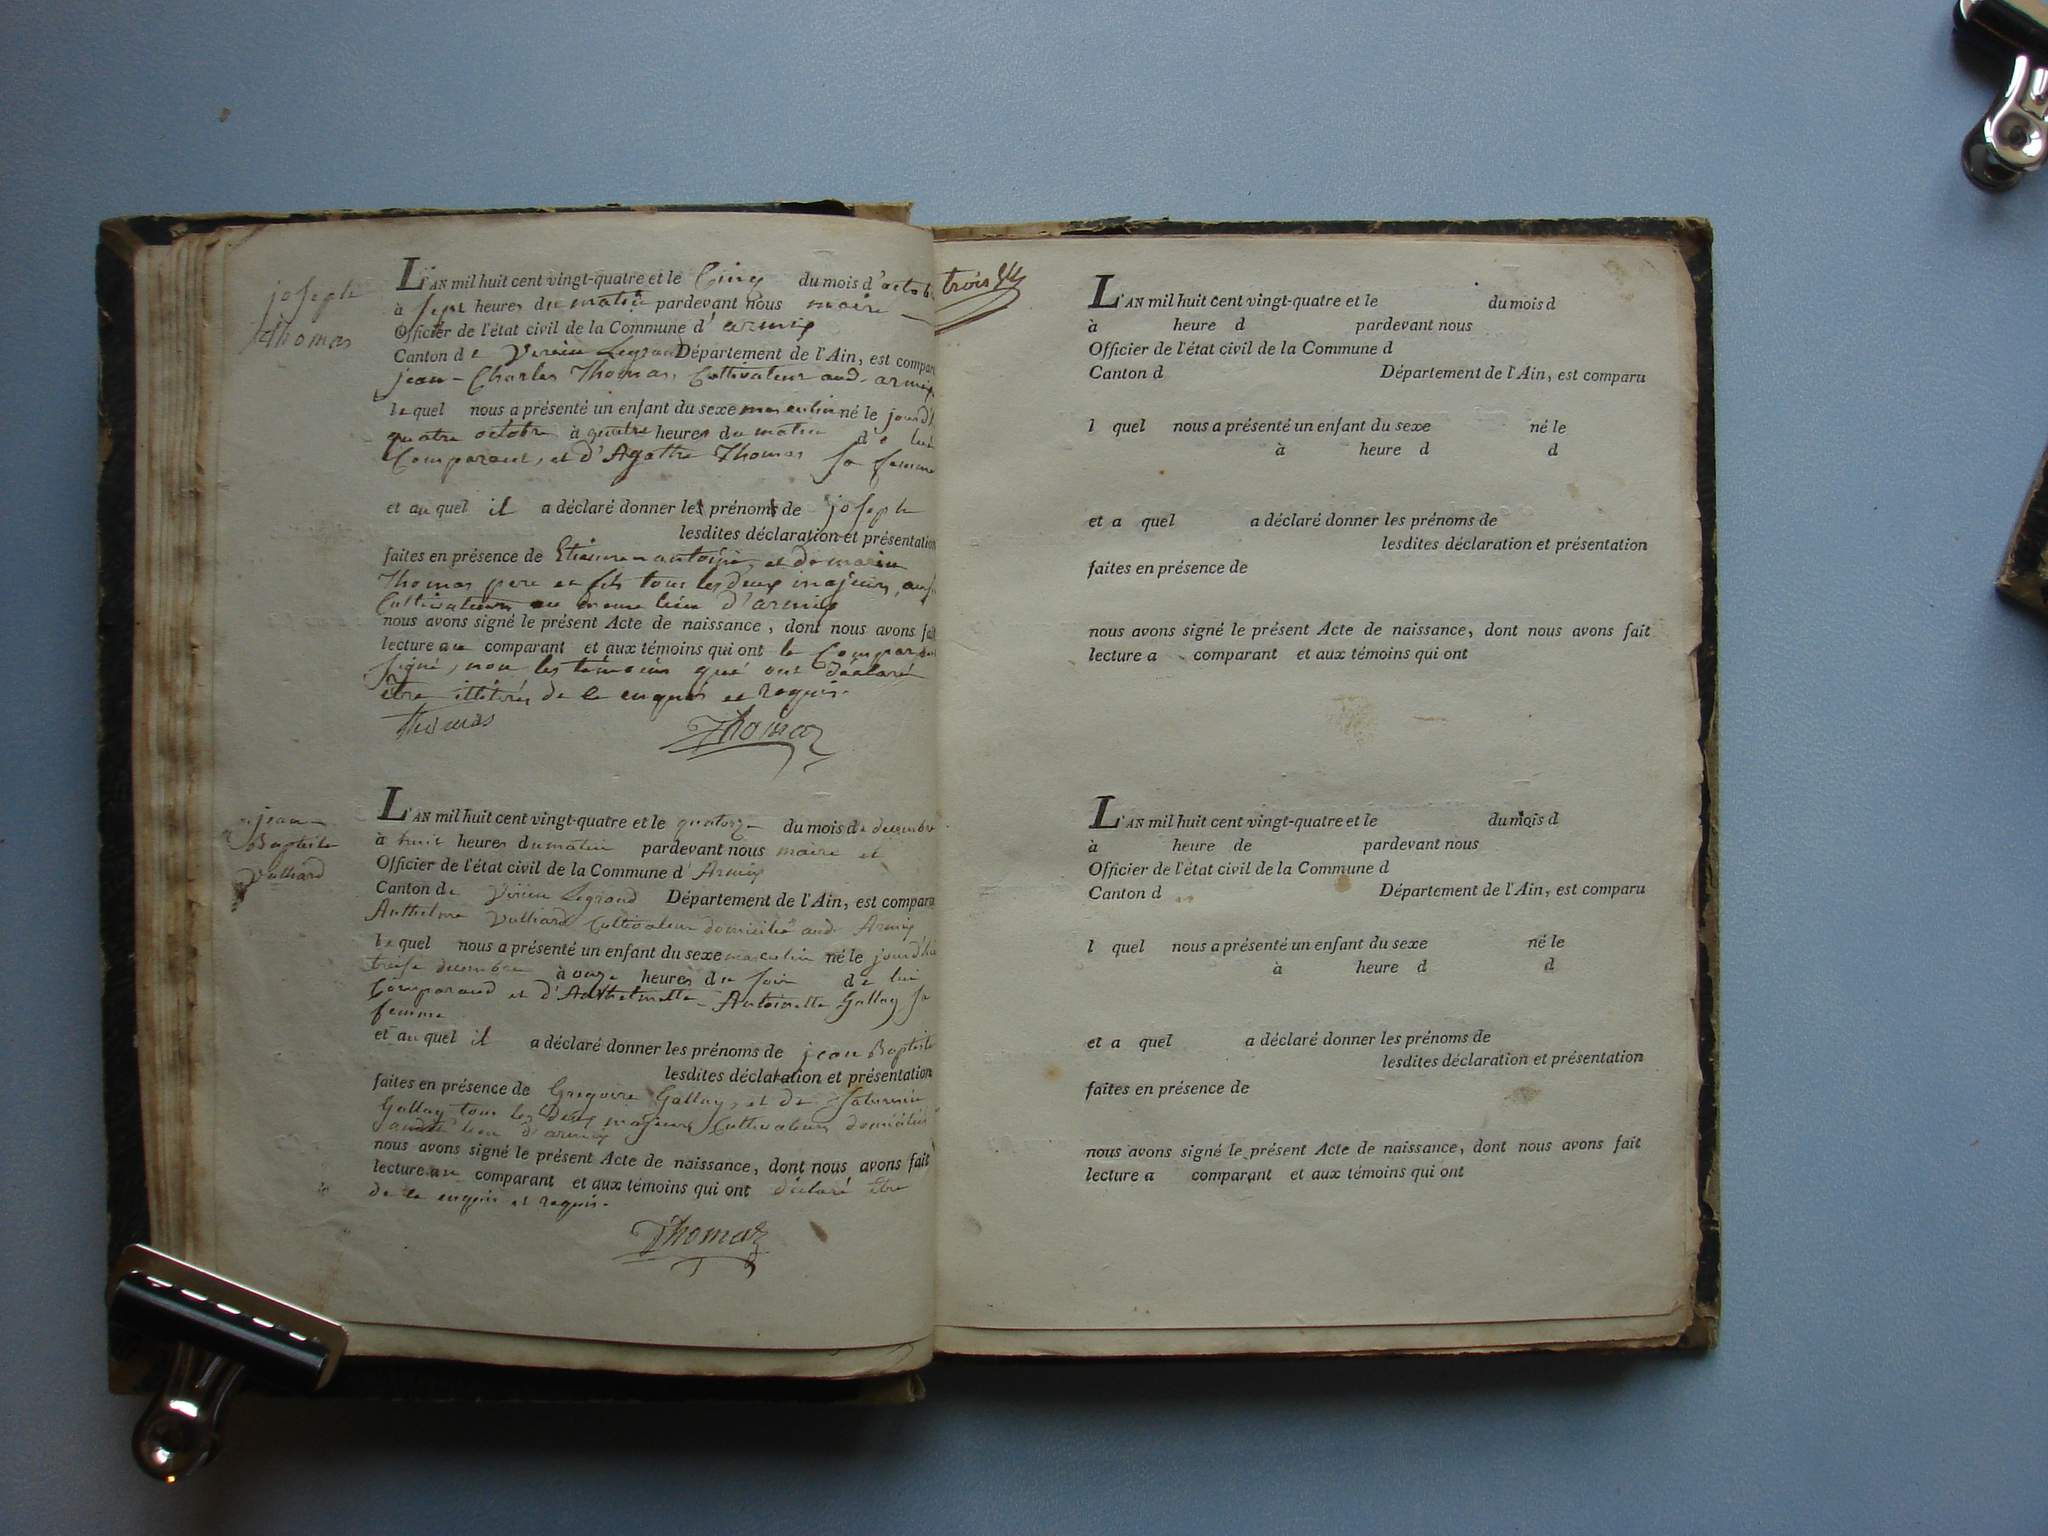 joseph
Thomas
L'AN mil huit cent vingt-quatre et le Cinq du mois d'octob
à sept heures du matin pardevant nous maire
Officier de l'état civil de la Commune d'armix
Canton de Virieu Legrand Département de l'Ain, est compar
jean-Charles Thomas, Cultivateur aud. armix
lequel nous a présenté un enfant du sexe masculin né le jourd'h
quatre octobre à quatre heures du matin de lui
Comparant, et d'Agathe Thomas sa femme
et auquel il a déclaré donner les prénoms de joseph
lesdites déclaration et présentation
faites en présence de et de marin
Thomas pere et fils tous les deux majeurs,
Cultivateurs au meme lieu d'armix
nous avons signé le présent Acte de naissance, dont nous avons fait
lecture au comparant et aux témoins qui ont le Comparant
signé, non les témoins qui ont déclaré
être illitérés de ce enquis et requis.
Thomas Thomas
jean
Baptiste
Vulliard
L'AN mil huit cent vingt-quatre et le quatorze du mois de decembre
à huit heures du matin pardevant nous maire et
Officier de l'état civil de la Commune d'Armix
Canton de Virieu Legrand Département de l'Ain, est comparu
Anthelme Vulliard Cultivateur domicilié aud. Armix
lequel nous a présenté un enfant du sexe masculin né le jourd'hui
treise decembre à onze heures du soir de lui
Comparand et d'Anthelmette Antoinette Gallay sa
femme
et auquel il a déclaré donner les prénoms de jean Baptiste
lesdites déclaration et présentation
faites en présence de Gregoire Gallay, et de Saturnin
Gallay tous les Deux majeurs Cultivateurs domiciliés
audit lieu d'armix
nous avons signé le présent Acte de naissance, dont nous avons fait
lecture au comparant et aux témoins qui ont déclaré être
de ce enquis et requis.
Thomas
trois
L'AN mil huit cent vingt-quatre et le du mois d
à heure d pardevant nous
Officier de l'état civil de la Commune d
Canton d Département de l'Ain, est comparu
l quel nous a présenté un enfant du sexe né le
à heure d d
et a quel a déclaré donner les prénoms de
lesdites déclaration et présentation
faites en présence de
nous avons signé le présent Acte de naissance, dont nous avons fait
lecture a comparant et aux témoins qui ont
L'AN mil huit cent vingt-quatre et le du mois d
à heure de pardevant nous
Officier de l'état civil de la Commune d
Canton d Département de l'Ain, est comparu
l quel nous a présenté un enfant du sexe né le
à heure d d
et a quel a déclaré donner les prénoms de
lesdites déclaration et présentation
faites en présence de
nous avons signé le présent Acte de naissance, dont nous avons fait
lecture a comparant et aux témoins qui ont